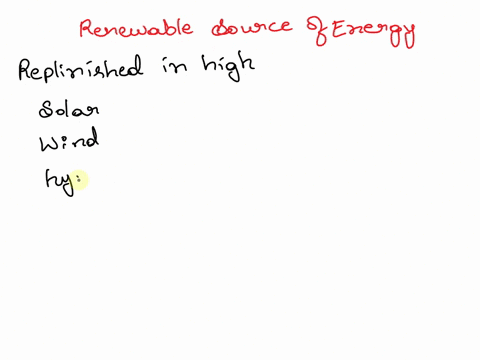 Renewable Source of Energy
Replinished in high
Solar
Wind
hy